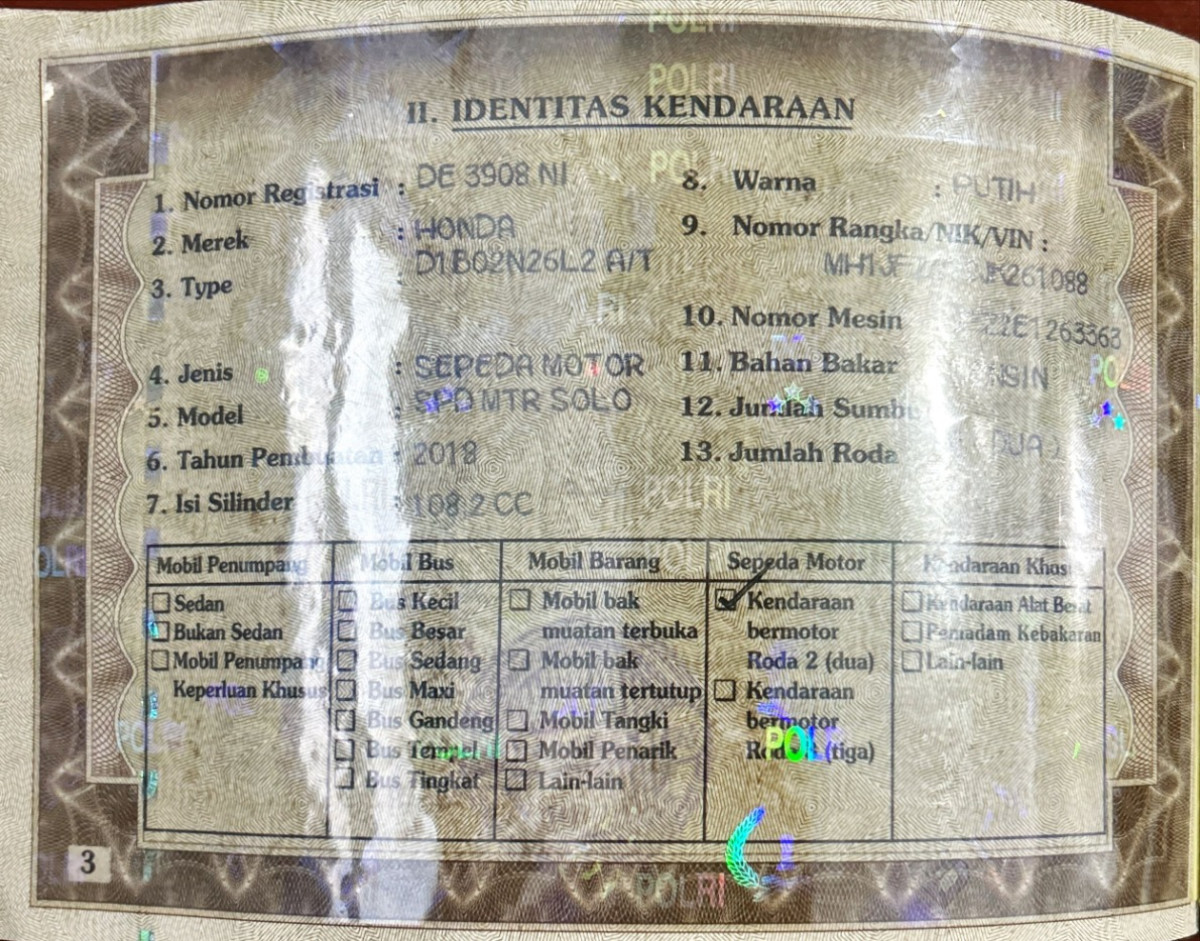 II. IDENTITAS KENDARAAN
1. Nomor Registrasi : DE 3908 NI
2. Merek : HONDA
3. Type : D1B02N26L2 A/T
4. Jenis : SEPEDA MOTOR
5. Model : SPD MTR SOLO
6. Tahun Pembuatan : 2018
7. Isi Silinder : 108.2 CC
8. Warna : PUTIH
9. Nomor Rangka/NIK/VIN :
10. Nomor Mesin
11. Bahan Bakar
12. Jumlah
13. Jumlah Roda
Mobil Penumpang
Sedan
Bukan Sedan
Mobil Penumpang
Keperluan Khusus
Mobil Bus
Bus Kecil
Bus Besar
Bus Sedang
Bus Maxi
Bus Gandeng
Bus Tempel
Bus Tingkat
Mobil Barang
Mobil bak
muatan terbuka
Mobil bak
muatan tertutup
Mobil Tangki
Mobil Penarik
Lain-lain
Sepeda Motor
Kendaraan
bermotor
Roda 2 (dua)
Kendaraan
bermotor
(tiga)
Kendaraan Khusus
Kendaraan Alat Berat
Pemadam Kebakaran
Lain-lain
3
POLRI